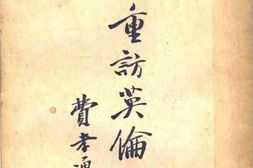 重訪英倫
費孝通